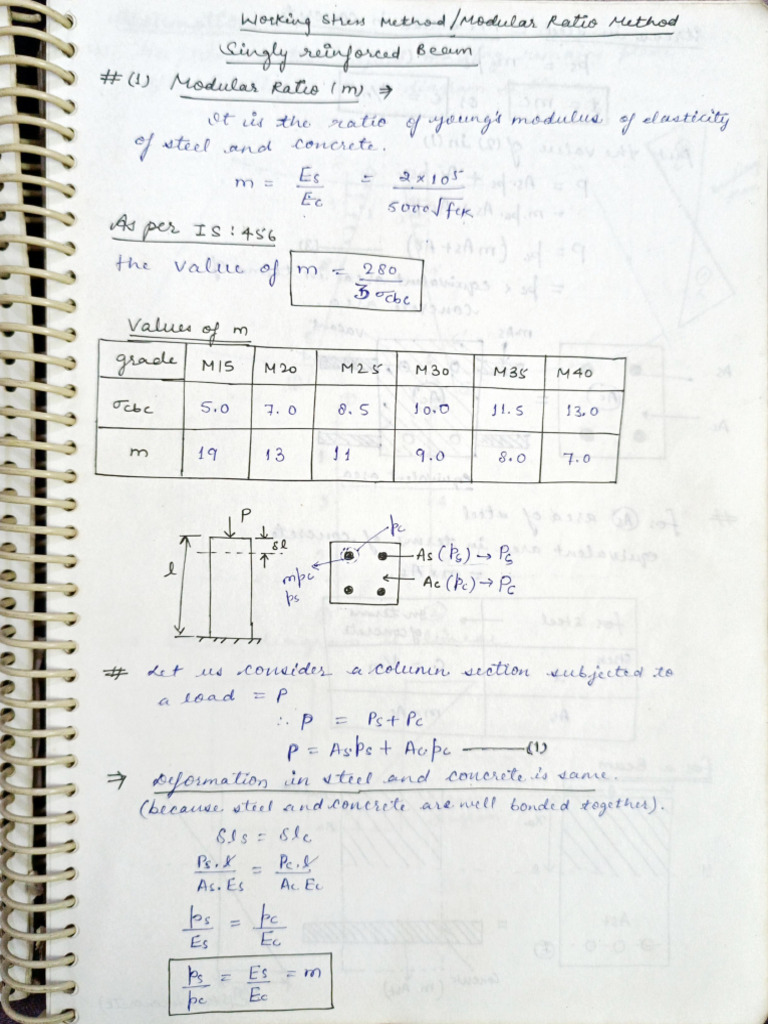 Working Stress Method/Modular Ratio Method
Singly reinforced Beam
# (1) Modular Ratio (m) ⇒
It is the ratio of young's modulus of elasticity
of steel and concrete.
m = Es/Ec = 2×10⁵/5000√fck
As per IS:456
the value of m = 280/3σcbc
Values of m
grade M15 M20 M25 M30 M35 M40
σcbc 5.0 7.0 8.5 10.0 11.5 13.0
m 19 13 11 9.0 8.0 7.0
P
δl
l
pc
mpc
ps
As (ps) → Ps
Ac (pc) → Pc
# Let us consider a column section subjected to
a load = P
∴ P = Ps + Pc
P = Asps + Acpc ——— (1)
⇒ Deformation in steel and concrete is same.
(because steel and concrete are well bonded together).
δls = δlc
Ps.l/As.Es = Pc.l/Ac Ec
ps/Es = pc/Ec
ps/pc = Es/Ec = m